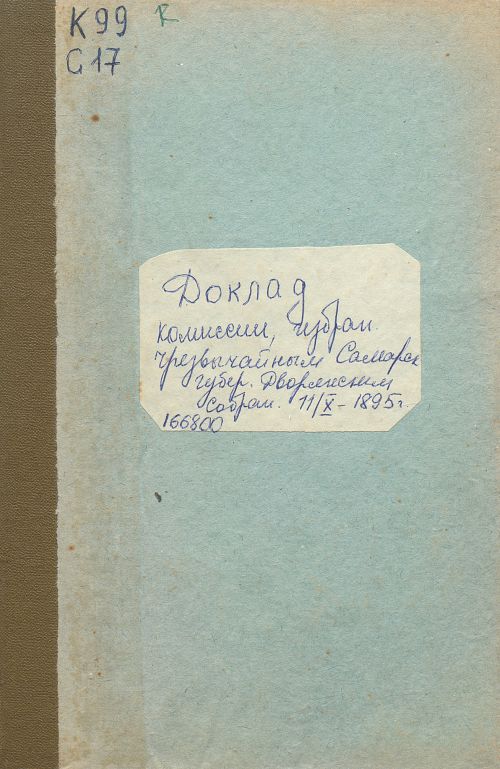 К99 R
С17
Доклад
комиссии, избран.
Чрезвычайным Самарск
губер. Дворянским
Собран. 11/X - 1895г.
166800